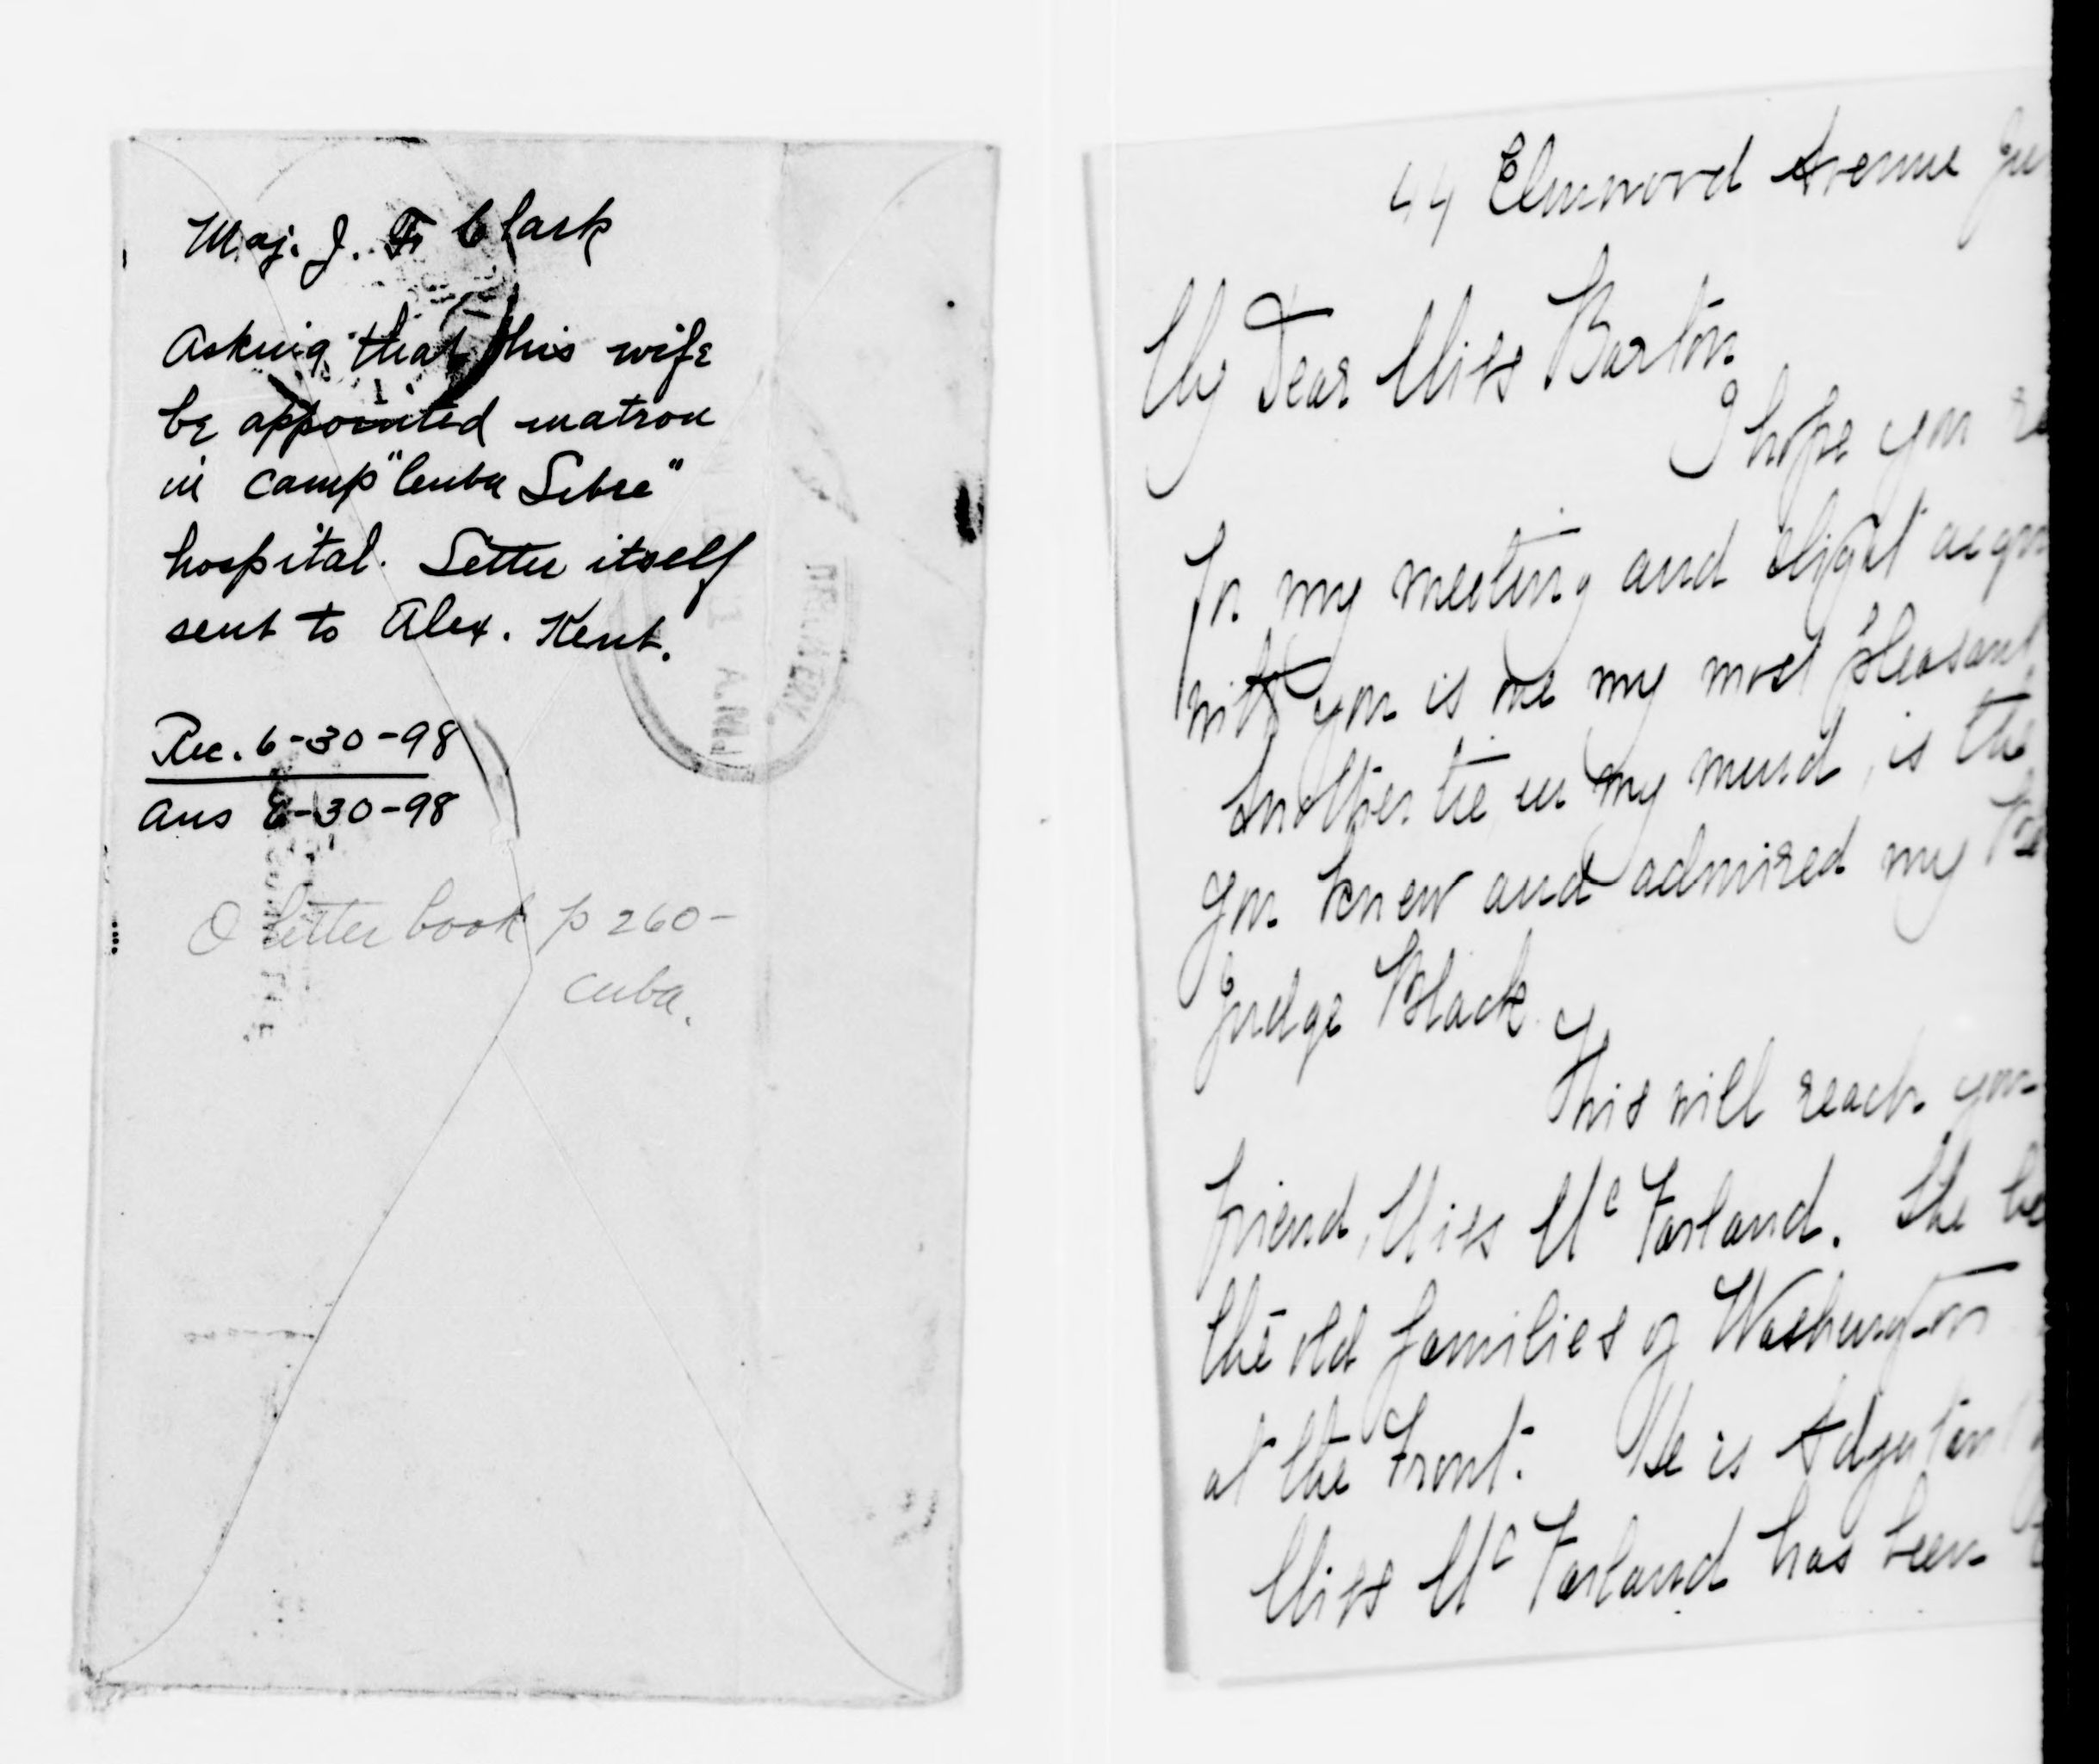 Maj. J. F. Clark
Asking that his wife
be appointed matron
in camp "Cuba Libre"
hospital. Letter itself
sent to Alex. Kent.
Rec. 6-30-98
Ans 6-30-98
letter book p 260-
Cuba.
DELIVERY.
44 Elmwood Avenue
My Dear Miss Barton
I hope you
my meeting and slight
with you is one my most pleasant
Another tie in my mind, is the
you knew and admired my
Judge Black
This will reach you
friend, Miss McFarland. She
the old families of Washington
at the Front. He is Adjutant
Miss McFarland has been